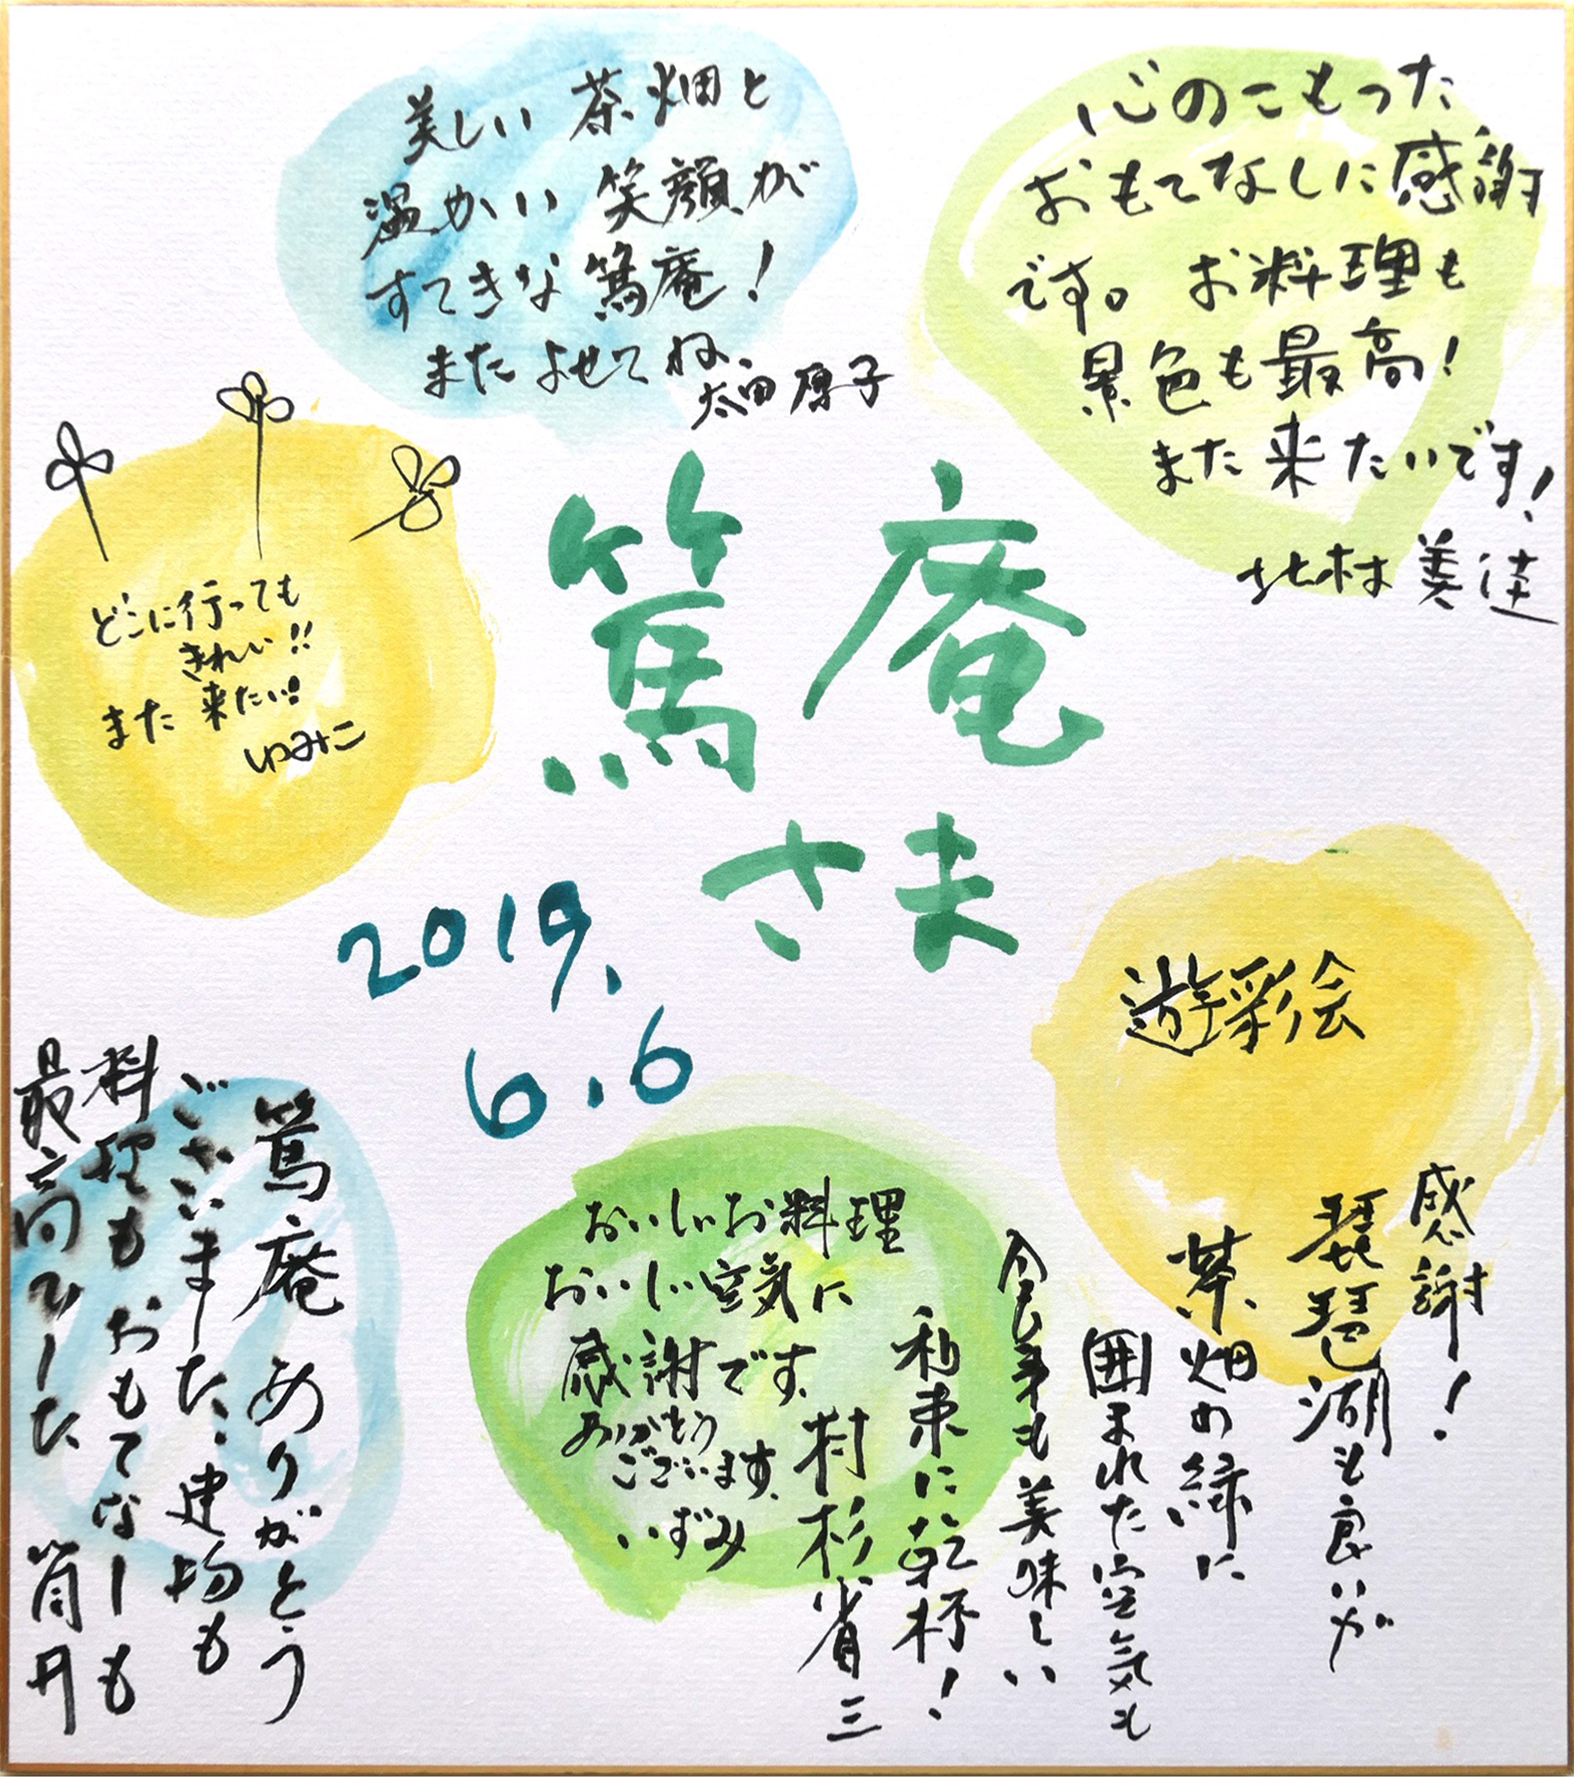 美しい茶畑と
温かい笑顔が
すてきな篤庵!
またよせてね、
太田原子
心のこもった
おもてなしに感謝
です。お料理も
景色も最高!
また来たいです!
北村美達
どこに行っても
きれい!!
また来たい!
ゆみこ
篤庵
さま
2019.
6.6
遊彩会
感謝!
琵琶湖も良いが
茶畑の緑に
囲まれた空気も
食事も美味しい
和束に乾杯!
村杉省三
おいしいお料理
おいしい空気に
感謝です。
ありがとう
ございます。
いずみ
篤庵ありがとう
ございました、建物も
料理もおもてなしも
最高でした 筒井